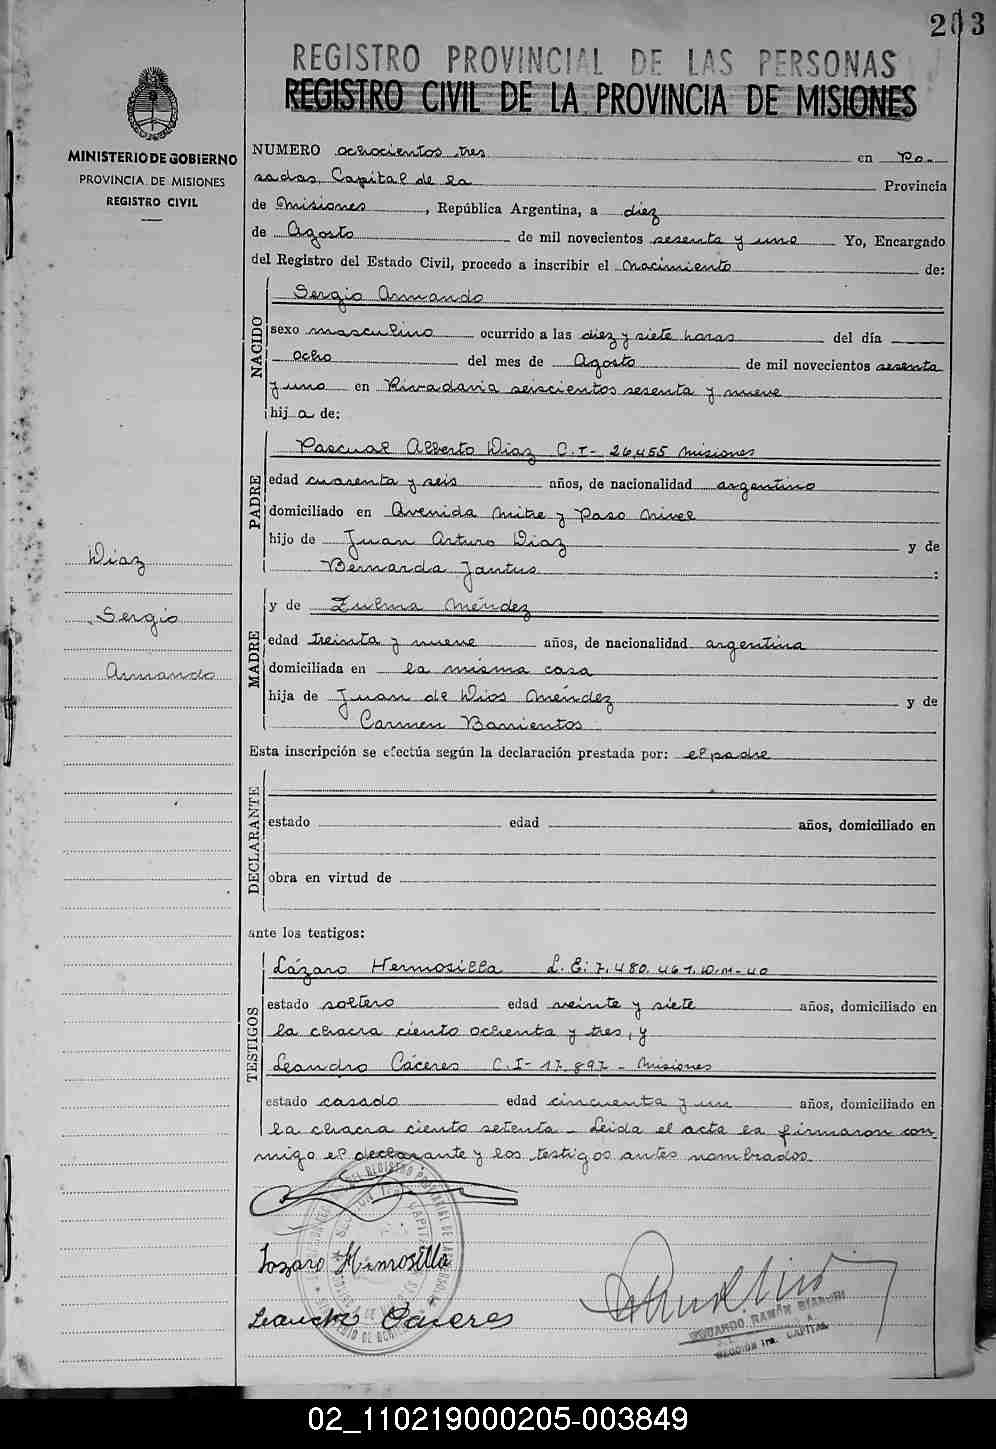 203
REGISTRO PROVINCIAL DE LAS PERSONAS
REGISTRO CIVIL DE LA PROVINCIA DE MISIONES
MINISTERIO DE GOBIERNO
PROVINCIA DE MISIONES
REGISTRO CIVIL
NUMERO ochocientos tres en Po-
sadas, Capital de la Provincia
de Misiones, República Argentina, a diez
de Agosto de mil novecientos sesenta y uno Yo, Encargado
del Registro del Estado Civil, procedo a inscribir el Nacimiento de:
NACIDO
Sergio Armando
sexo masculino ocurrido a las diez y siete horas del día
ocho del mes de Agosto de mil novecientos sesenta
y uno en Rivadavia seiscientos sesenta y nueve
hij a de:
PADRE
Pascual Alberto Diaz C.I- 26,455 Misiones
edad cuarenta y seis años, de nacionalidad argentino
domiciliado en Avenida Mitre y Paso Nivel
hijo de Juan Arturo Diaz y de
Bernarda Jantus :
Diaz
Sergio
Armando
MADRE
y de Zulma Méndez
edad treinta y nueve años, de nacionalidad argentina
domiciliada en la misma casa
hija de Juan de Dios Méndez y de
Carmen Barrientos
Esta inscripción se efectúa según la declaración prestada por: el padre
DECLARANTE
estado edad años, domiciliado en
obra en virtud de
ante los testigos:
TESTIGOS
Lázaro Hermosilla L. E: 7.480.461.D.M-40
estado soltero edad veinte y siete años, domiciliado en
la chacra ciento ochenta y tres, y
Leandro Cáceres C.I- 17.897 - Misiones
estado casado edad cincuenta y un años, domiciliado en
la chacra ciento setenta - Leida el acta la firmaron con-
migo el declarante y los testigos antes nombrados.
Lazaro Hermosilla
Leandro Caceres
EDUARDO RAMÓN BIANCHI
SECCIÓN 1ra. CAPITAL
02_110219000205-003849